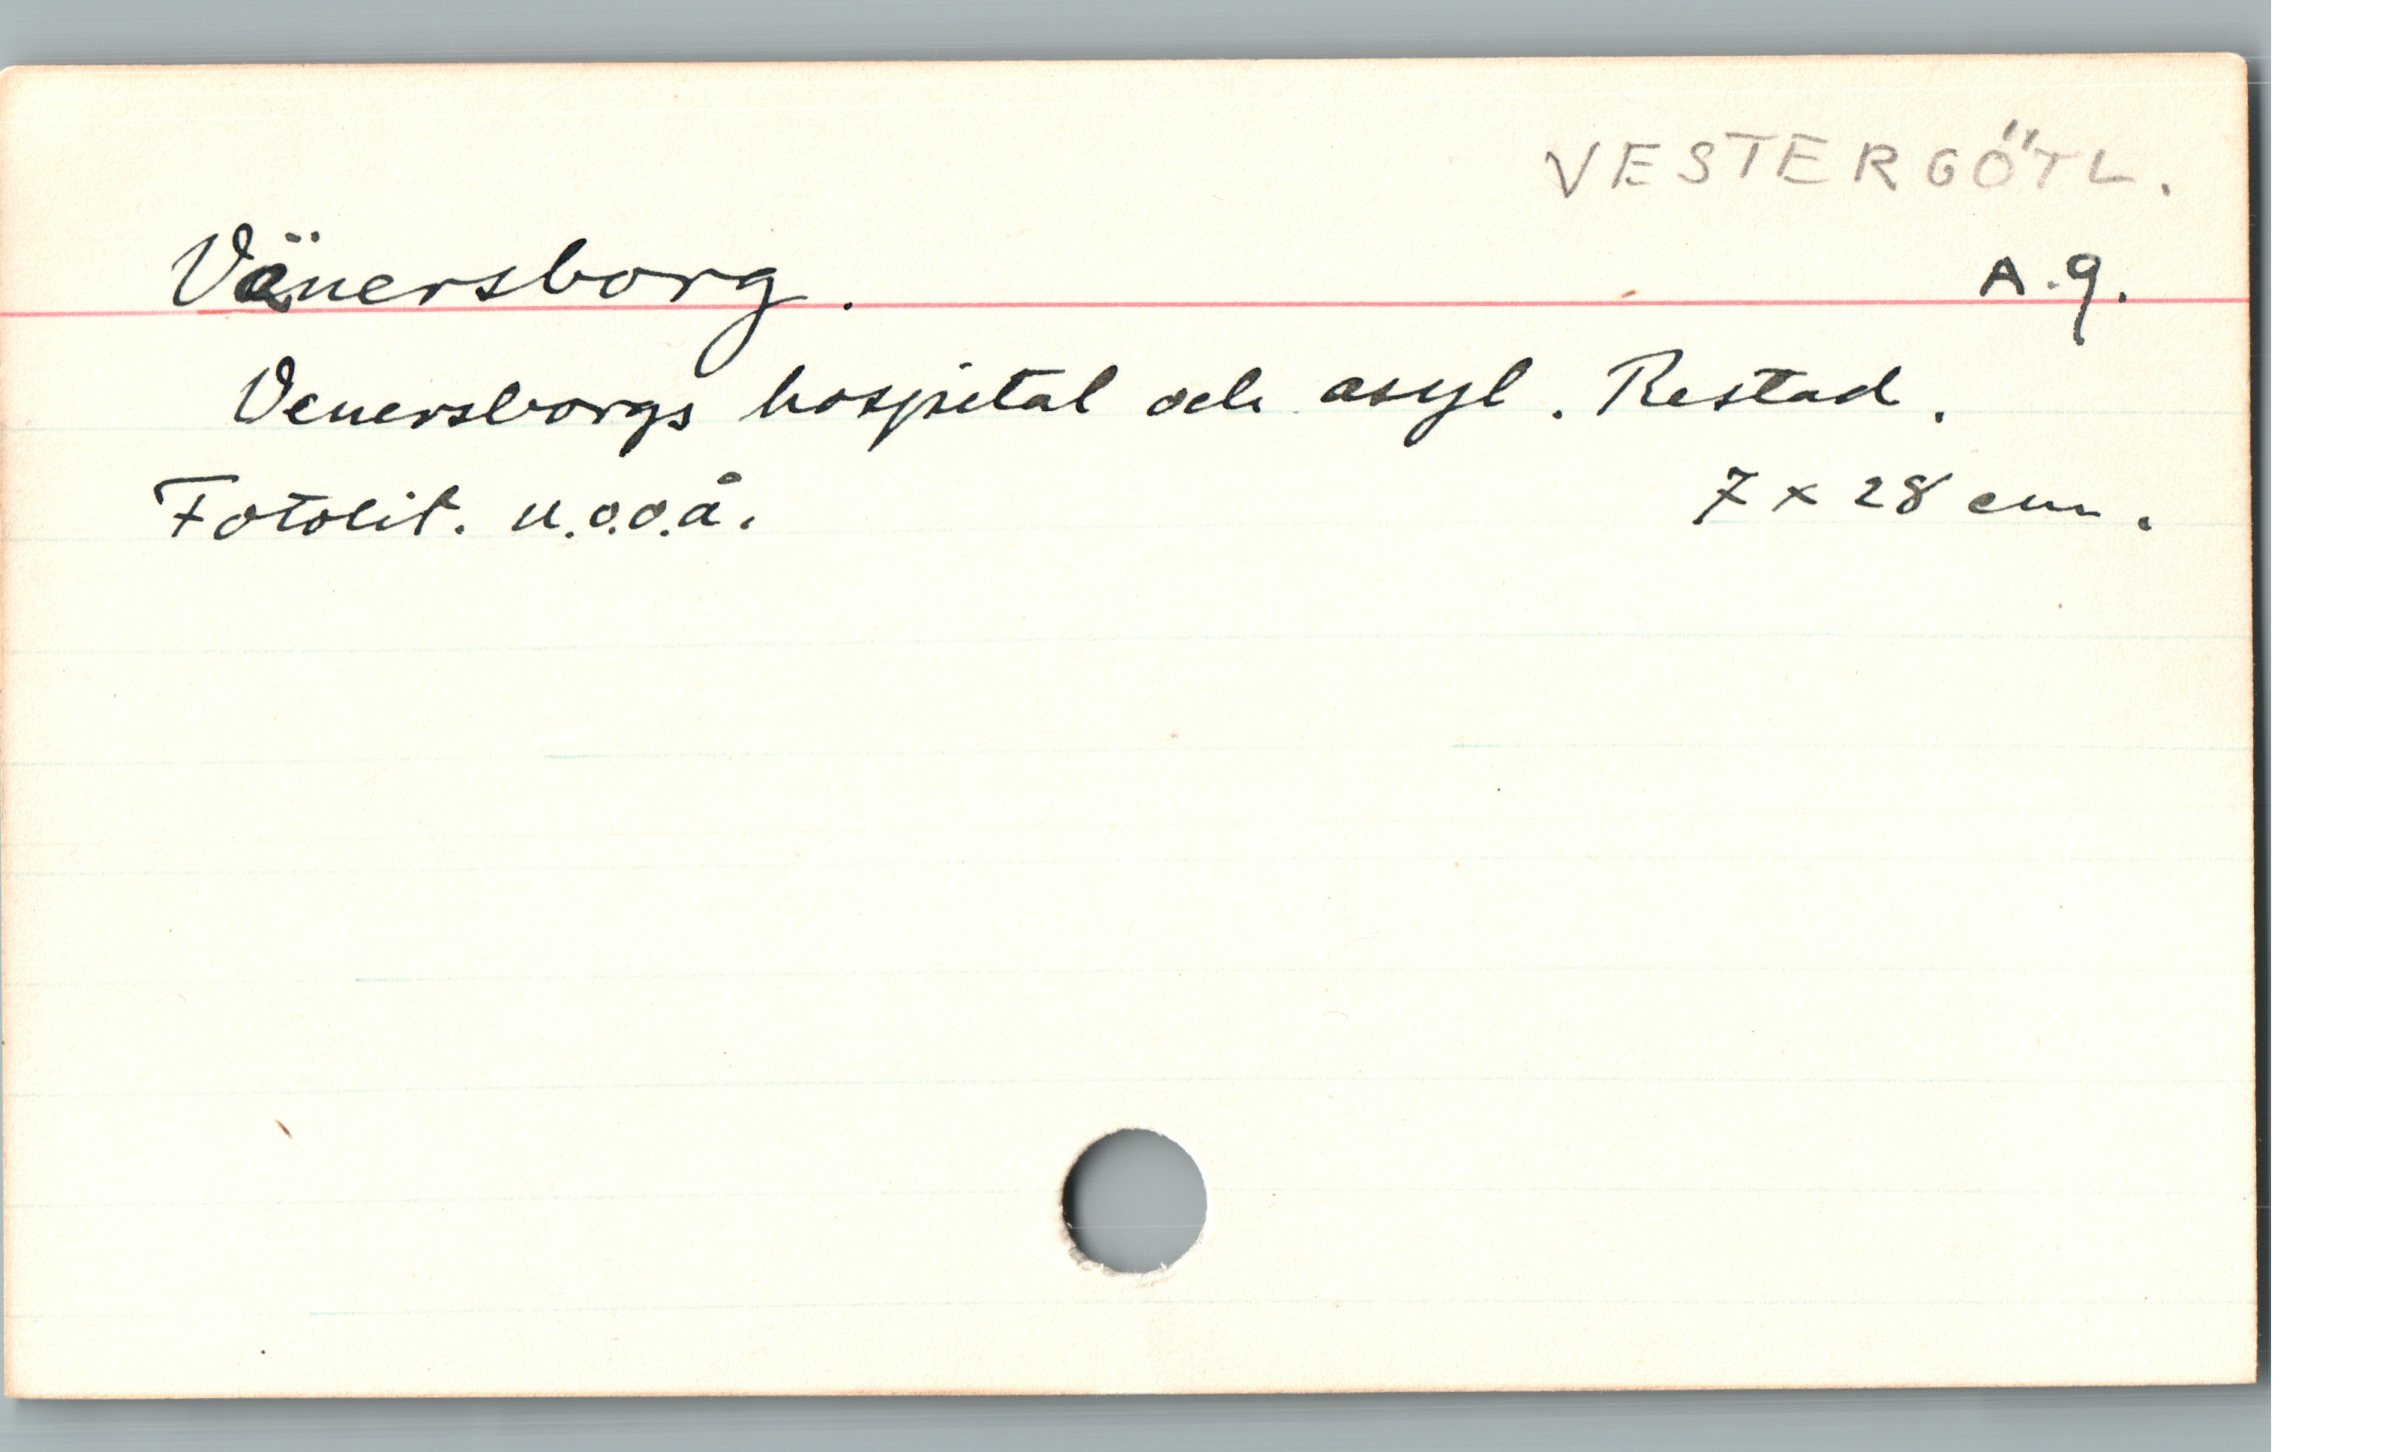 VESTERGÖTL.
Vänersborg. A.9.
Venersborgs hospital och asyl. Restad.
Fotolit. u.o.o.å. 7 x 28 cm.